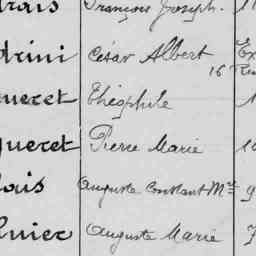 François Joseph.
drini César Albert Ex
16
queret Théophile
queret Pierre Marie
lois Auguste Constant M
Auguste Marie